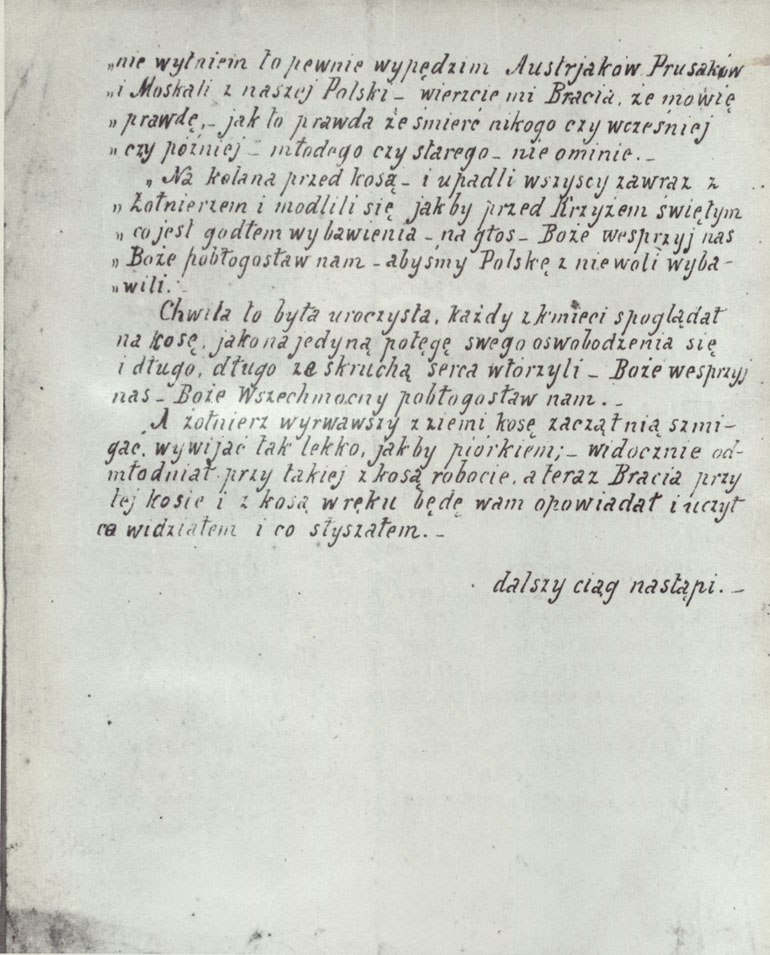 „nie wytniem to pewnie wypędzim Austrjaków Prusaków
„i Moskali z naszej Polski – wierzcie mi Bracia, że mówię
„prawdę, – jak to prawda że śmierć nikogo czy wcześniej
„czy później – młodego czy starego – nie ominie. –
„Na kolana przed kosą – i upadli wszyscy zawraz z
„żołnierzem i modlili się jakby przed Krzyżem świętym
„co jest godłem wybawienia – na głos – Boże wesprzyj nas
„Boże pobłogosław nam – abyśmy Polskę z niewoli wyba-
„wili. –
Chwila to była uroczysta, każdy z kmieci spoglądał
na kosę, jako na jedyną potęgę swego oswobodzenia się
i długo, długo ze skruchą serca wtórzyli – Boże wesprzyj
nas – Boże Wszechmocny pobłogosław nam. –
A żołnierz wyrwawszy z ziemi kosę zaczął nią szmi-
gać, wywijać tak lekko, jakby piórkiem; – widocznie od-
młodniał przy takiej z kosą robocie, a teraz Bracia przy
tej kosie i z kosą w ręku będę wam opowiadał i uczył
co widziałem i co słyszałem. –
dalszy ciąg nastąpi. –